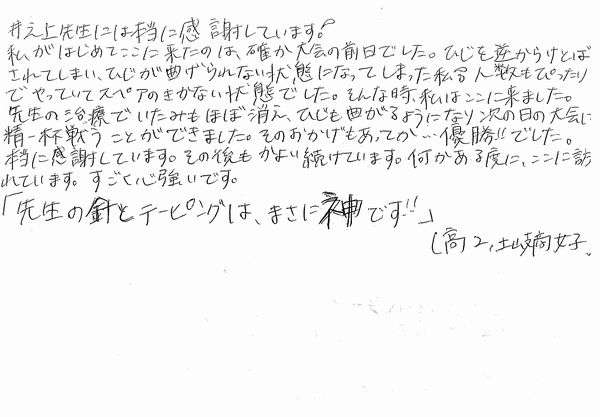 井之上先生には本当に感謝しています。
私がはじめてここに来たのは、確か大会の前日でした。ひじを逆からけとば
されてしまい、ひじが曲げられない状態になってしまった私。人数もぴったり
でやっていてスペアのきかない状態でした。そんな時、私はここに来ました。
先生の治療でいたみもほぼ消え、ひじも曲がるようになり次の日の大会に
精一杯戦うことができました。そのおかげもあってか…優勝!!でした。
本当に感謝しています。その後もかよい続けています。何かある度に、ここに訪
れています。すごく心強いです。
「先生の針とテーピングは、まさに神です!!」
(高2,土崎 女子